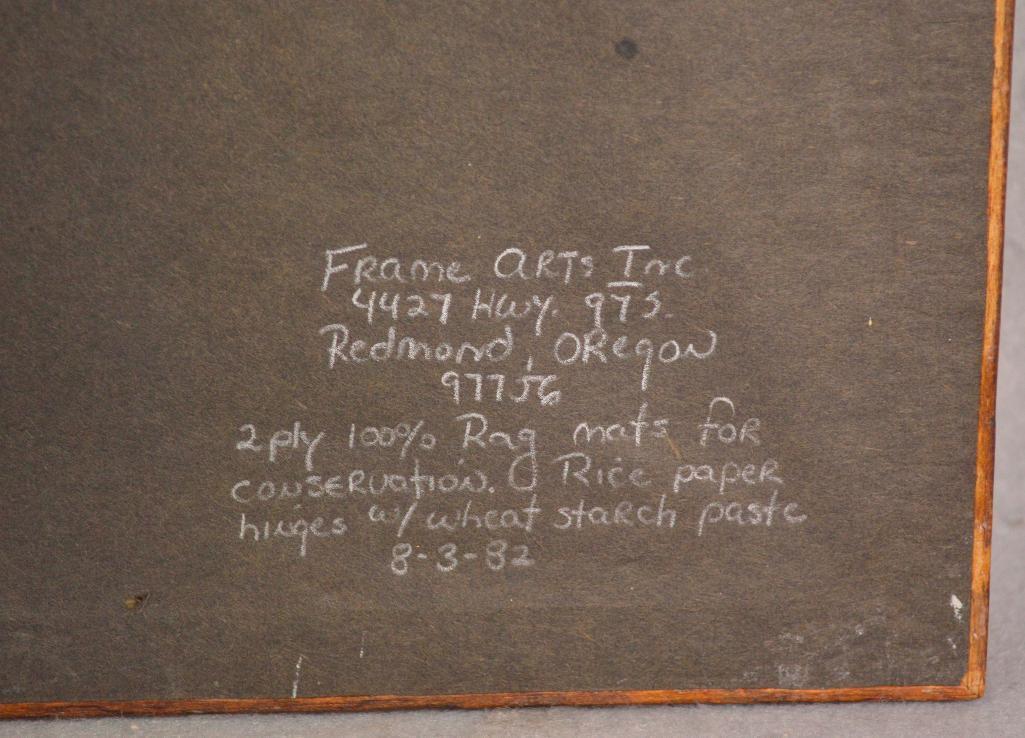 Frame Arts Inc
4427 Hwy. 97 S.
Redmond, Oregon
97756
2 ply 100% Rag mats for
conservation. Rice paper
hinges w/ wheat starch paste
8-3-82